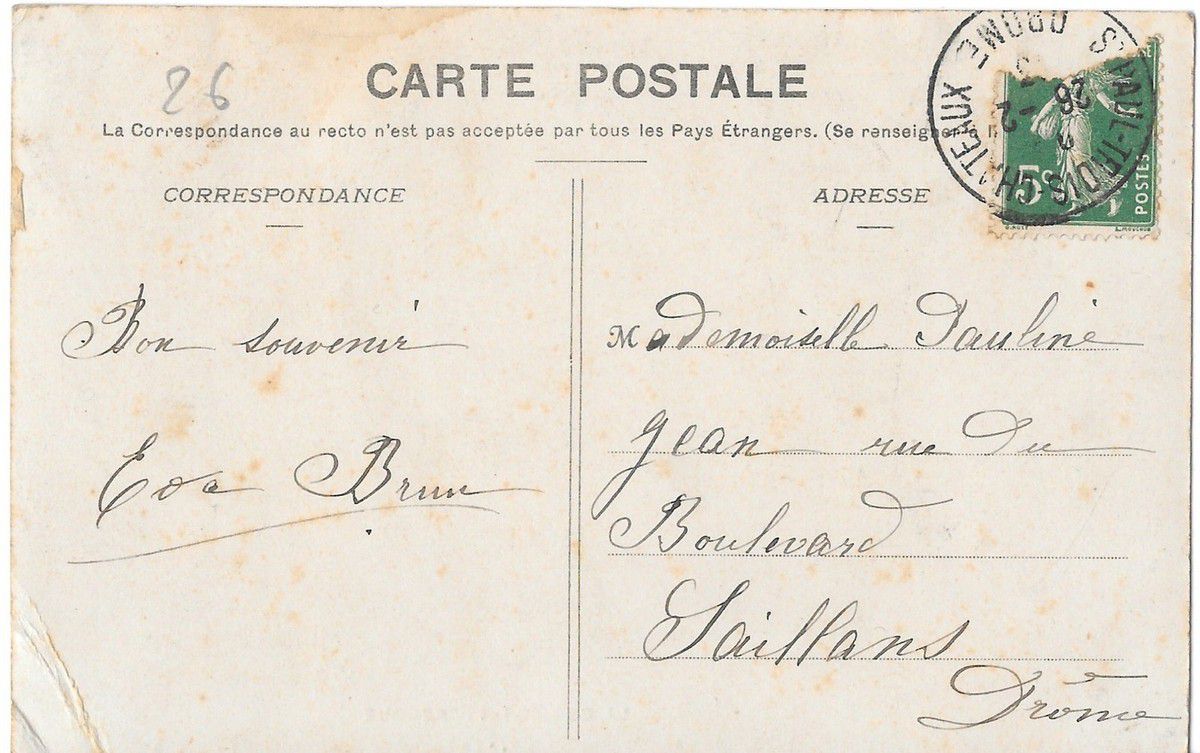 26
CARTE POSTALE
La Correspondance au recto n'est pas acceptée par tous les Pays Étrangers. (Se renseigner à
CORRESPONDANCE
Bon souvenir
Eva Brun
ADRESSE
Mademoiselle Pauline
Jean rue du
Boulevard
Saillans
Drôme
ST PAUL-TROIS-CHATEAUX
DROME
26
2
5c
POSTES
L. MOUCHON